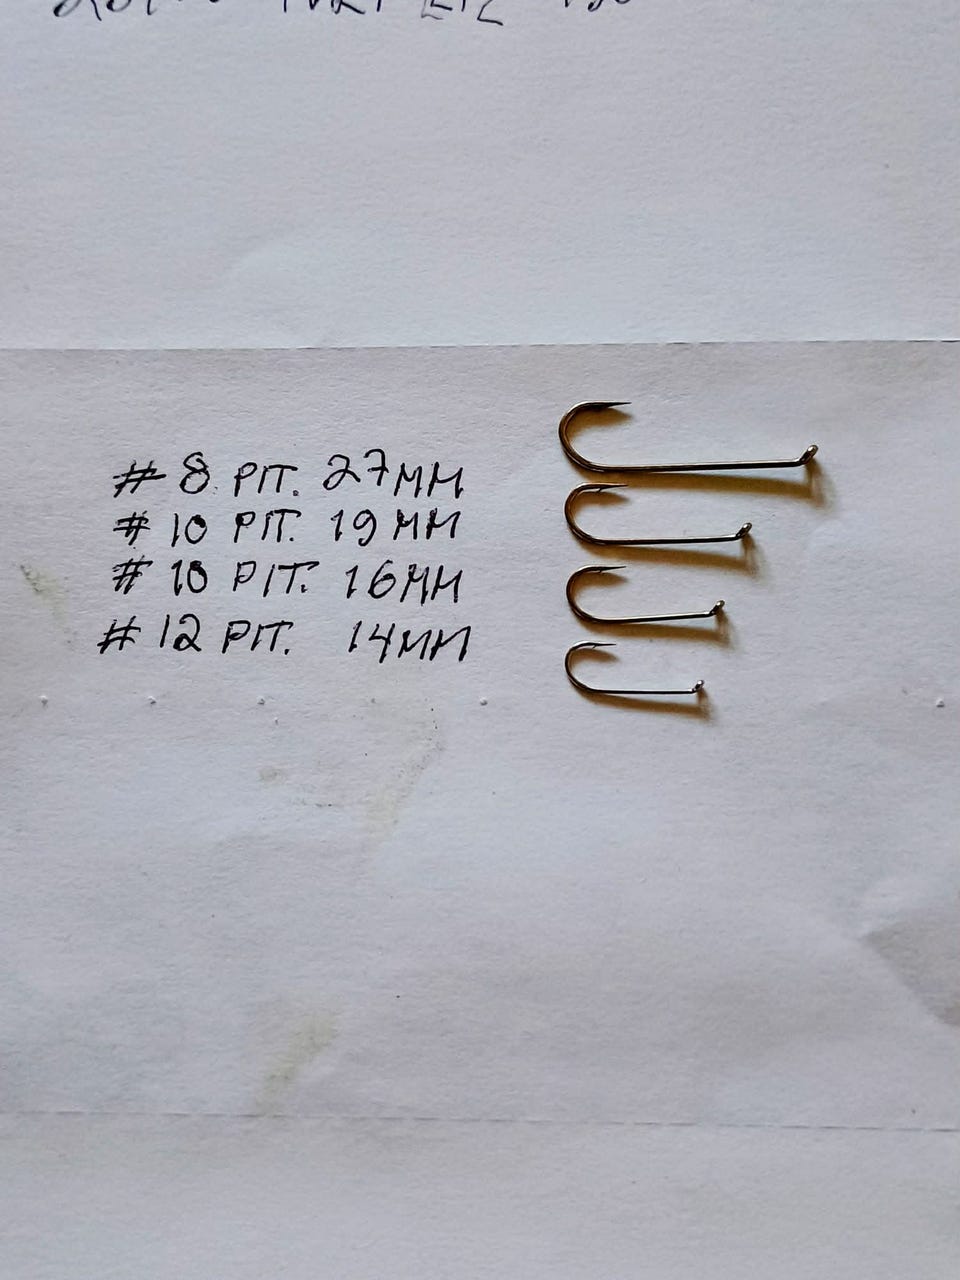 # 8 PIT. 27MM
# 10 PIT. 19MM
# 10 PIT. 16MM
# 12 PIT. 14MM